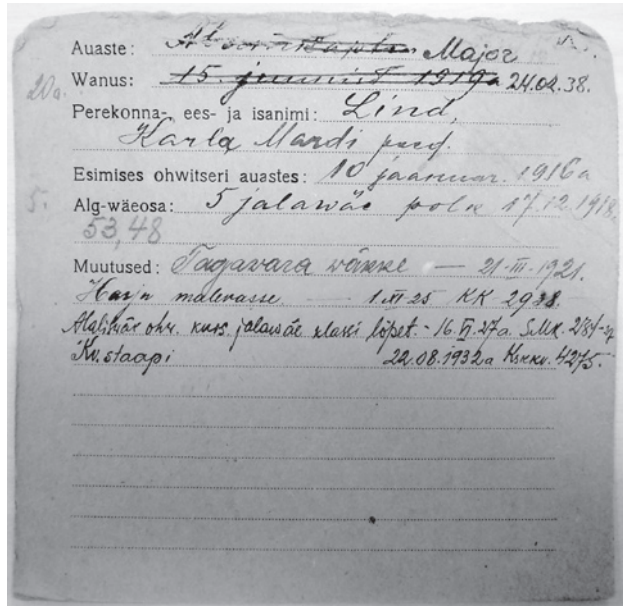 Auaste: Major
Wanus: 15. juunist 1919a 24.02.38.
20a.
Perekonna-, ees- ja isanimi: Lind,
Karla Mardi poeg.
Esimises ohwitseri auastes: 10 jaanuar. 1916a
5. Alg-wäeosa: 5 jalawäe polk 17.12.1918.
53,48
Muutused: Tagavara väkke — 21.III.1921.
Harju malevasse — 1.XI.25 KK 2938.
Alalisväe ohv. kurs. jalawäe klassi lõpet. - 16.VI.27a.
Kv. staapi 22.08.1932a 4275.